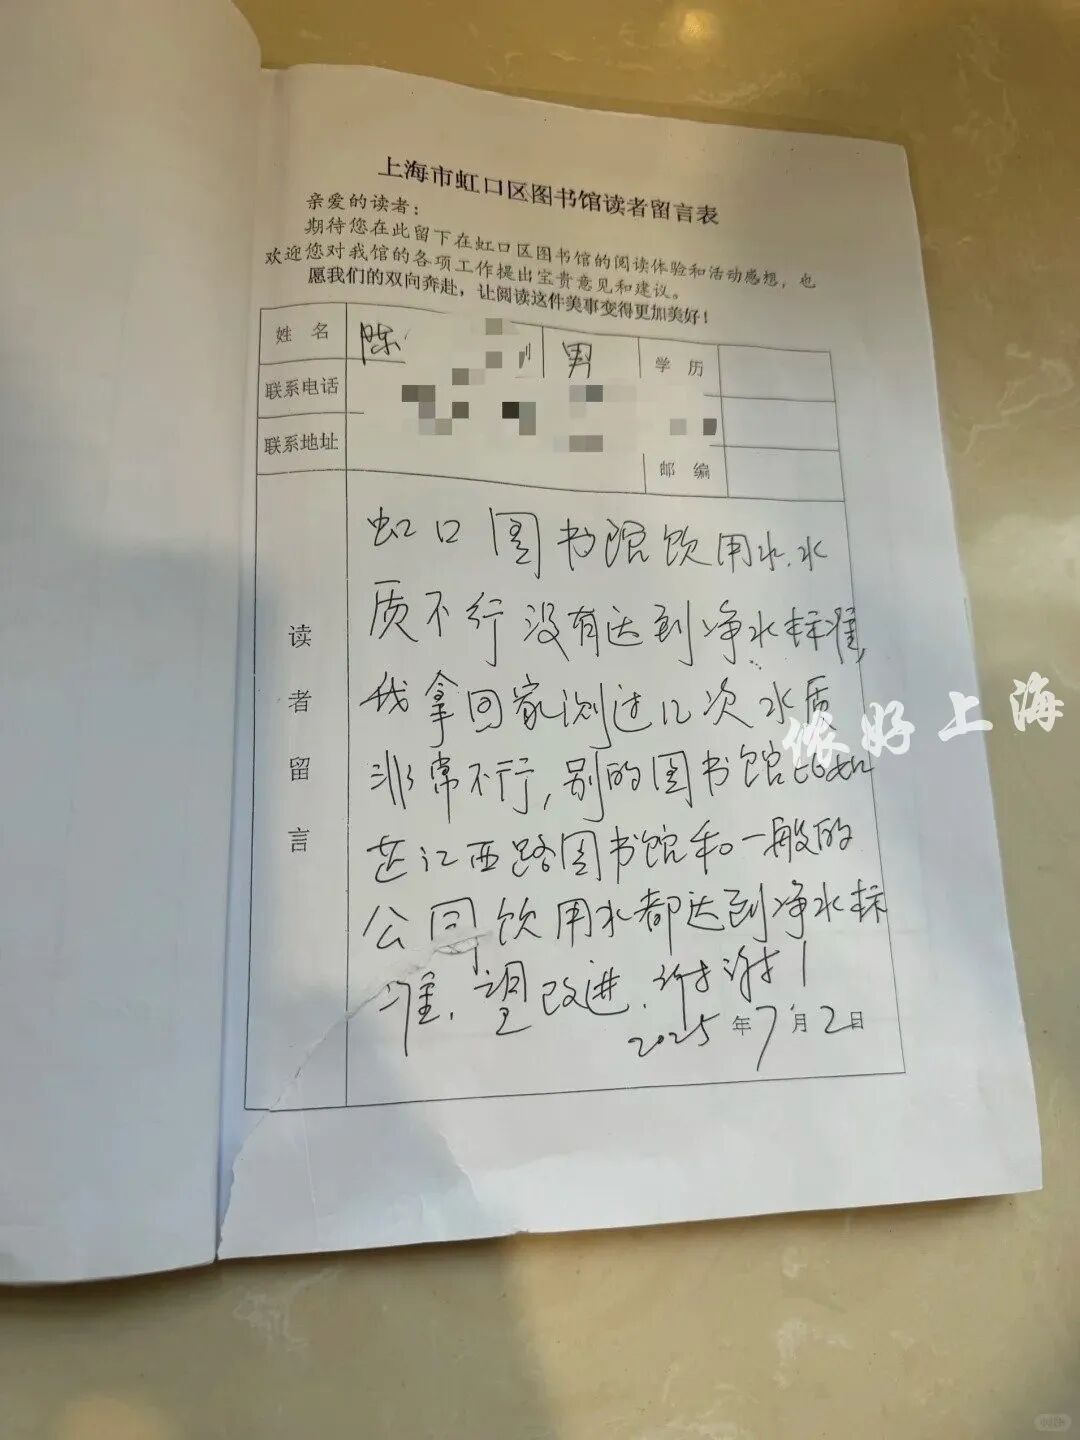 上海市虹口区图书馆读者留言表
亲爱的读者：
期待您在此留下在虹口区图书馆的阅读体验和活动感想，也
欢迎您对我馆的各项工作提出宝贵意见和建议。
愿我们的双向奔赴，让阅读这件美事变得更加美好！
姓 名 陈 男 学 历
联系电话
联系地址
邮 编
读者留言
虹口图书馆饮用水.水
质不行没有达到净水标准,
我拿回家测过几次水质
非常不行,别的图书馆比如
芷江西路图书馆和一般的
公司饮用水都达到净水标
准.望改进.谢谢!
2025年7月2日
侬好上海